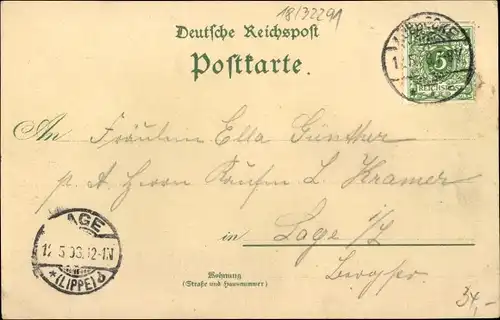 18/32291
Deutsche Reichspost
Postkarte.
LÜBBECKE
5
REICHSPOST
An Fräulein Ella Günther
p. A. Herrn Kaufm. L. Kramer
in Lage i/L
Bergstr.
LAGE
12 5 03. 12-1N
*(LIPPE) b
Wohnung
(Straße und Hausnummer)
34,-